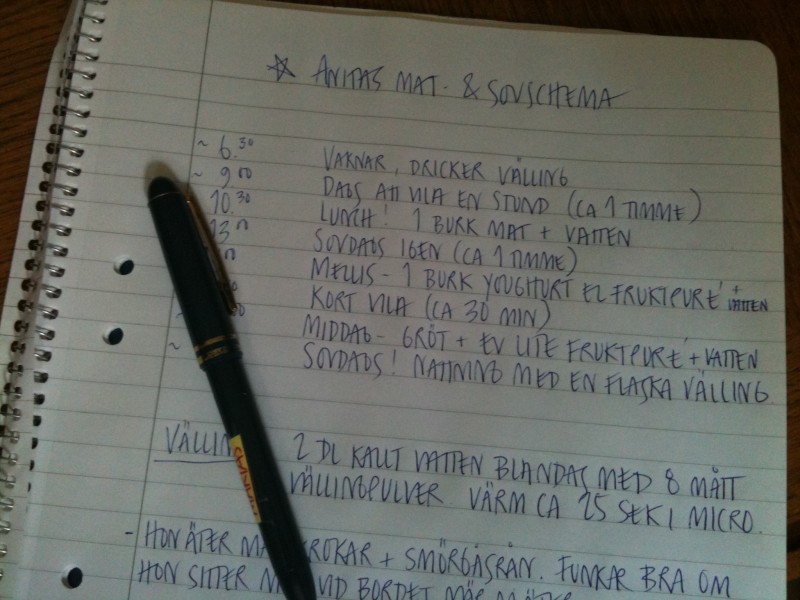 ☆ ANITAS MAT- & SOVSCHEMA
~ 6.30 VAKNAR, DRICKER VÄLLING
~ 9.00 DAGS ATT VILA EN STUND (CA 1 TIMME)
10.30 LUNCH! 1 BURK MAT + VATTEN
13.00 SOVDAGS IGEN (CA 1 TIMME)
MELLIS - 1 BURK YOUGHURT EL FRUKTPURÉ + VATTEN
KORT VILA (CA 30 MIN)
MIDDAG - GRÖT + EV LITE FRUKTPURÉ + VATTEN
~ SOVDAGS! NATTNING MED EN FLASKA VÄLLING
2 DL KALLT VATTEN BLANDAS MED 8 MÅTT
VÄLLINGPULVER VÄRM CA 25 SEK I MICRO.
- HON ÄTER + SMÖRGÅSRÅN. FUNKAR BRA OM
HON SITTER VID BORDET NÄR